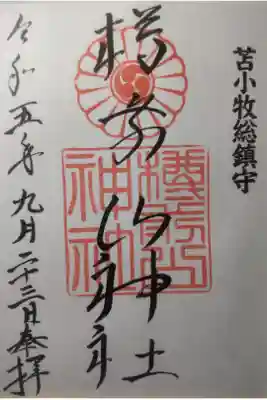 苫小牧総鎮守
樽前山神社
令和五年九月二十三日奉拝
樽前山
神社